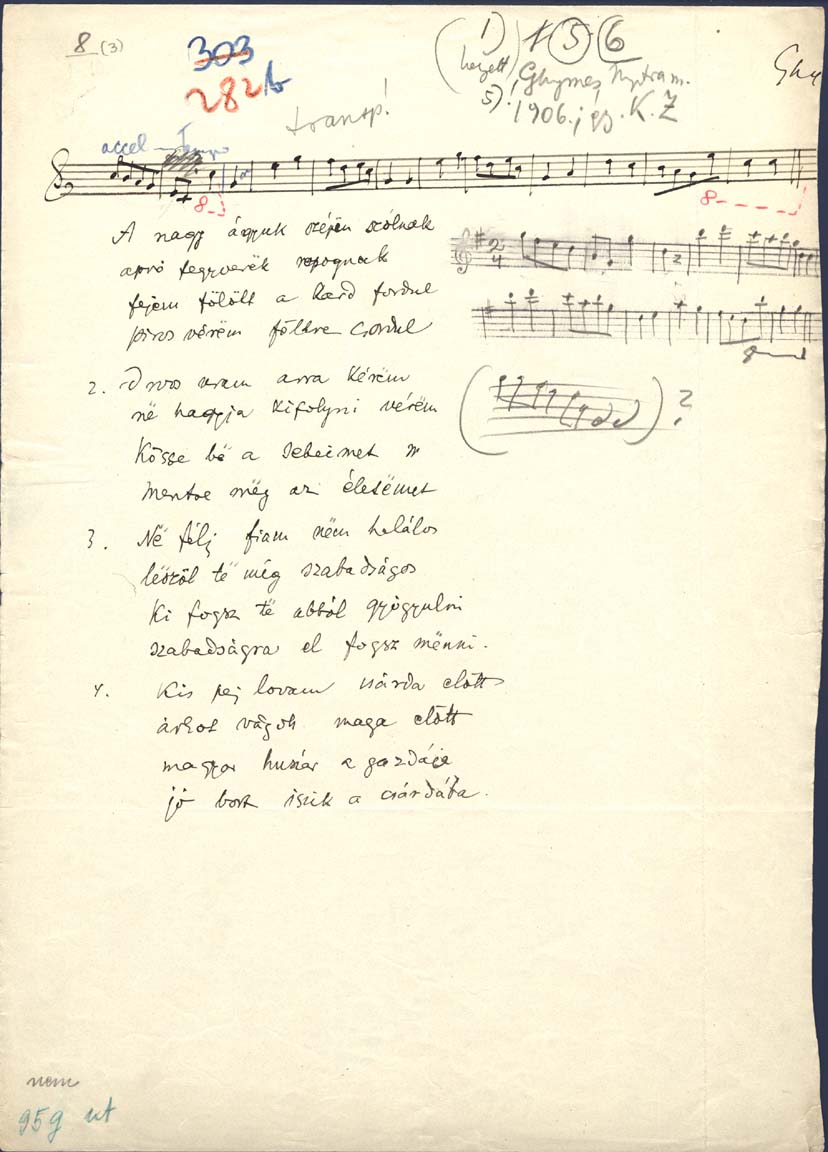 8 (3)
303
282b
1) 1 5 6
helyett
Ghymes, Nyitra m.
5).
1906. K. Z
transp!
accel - Tempo
8
8
A nagy ágyuk szépen szólnak
apró fegyverëk ropognak
fejem fölött a kard fordul
piros vérëm földre csordul
2
4
8
2. Orvos uram arra kérëm
në hagyja kifolyni vérëm
Kösse bë a sebeimet
mentse mëg az életëmet
?
3. Në félj fiam nëm halálos
lëszöl të még szabadságos
Ki fogsz të abból gyógyulni
szabadságra el fogsz mënni.
4. Kis pej lovam csárda előtt
árkot vágott maga előtt
magyar huszár a gazdája
jó bort iszik a csárdába.
nem
959 ut